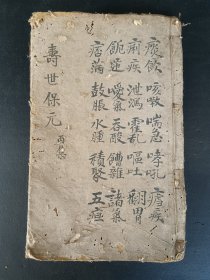 痰飲 咳嗽 喘急 哮吼 瘧疾
痢疾 泄瀉 霍乱 嘔吐 翻胃
逆 噯氣 吞酸 嘈雜 諸氣
痞滿 鼓脹 水腫 積聚 五疸
壽世保元